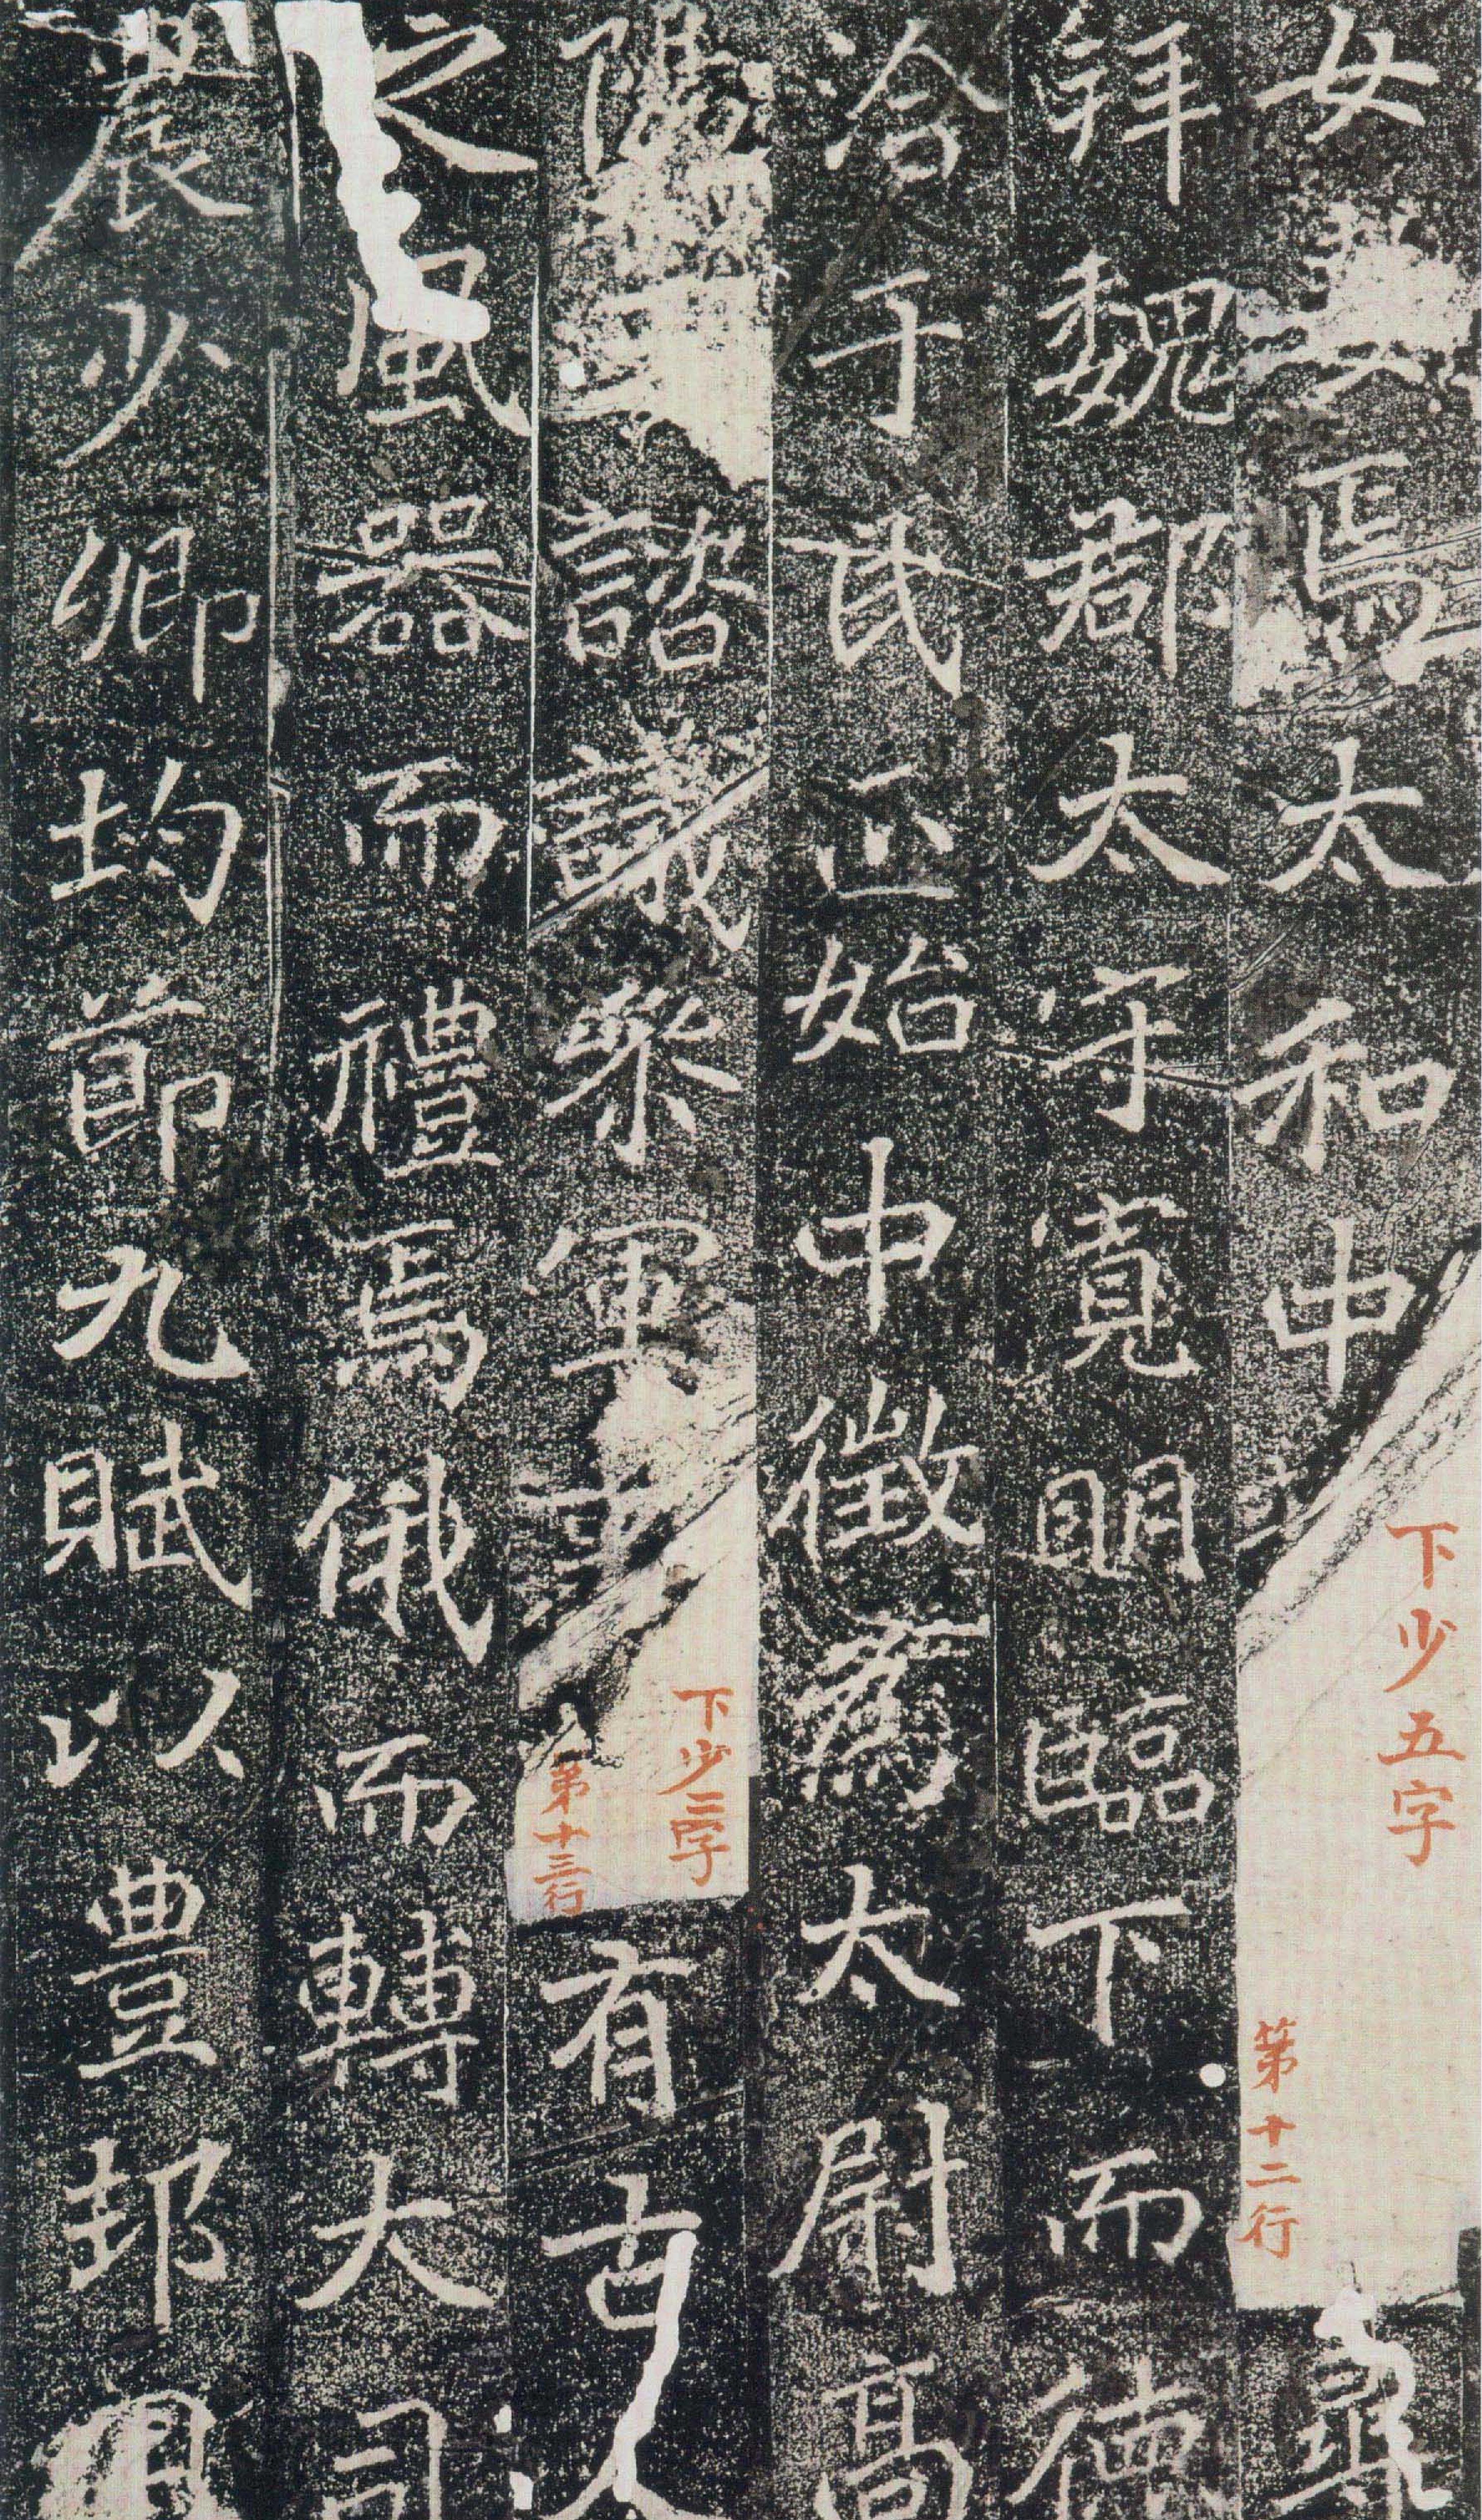 女妻焉太和中
下少五字
第十二行
尋
拜魏郡太守寬明臨下而德
洽于民正始中徵為太尉高
陽王諮議參軍事
下少二字
第十三行
有古人
之風器而禮焉俄而轉大司
農少卿均節九賦以豊邦用